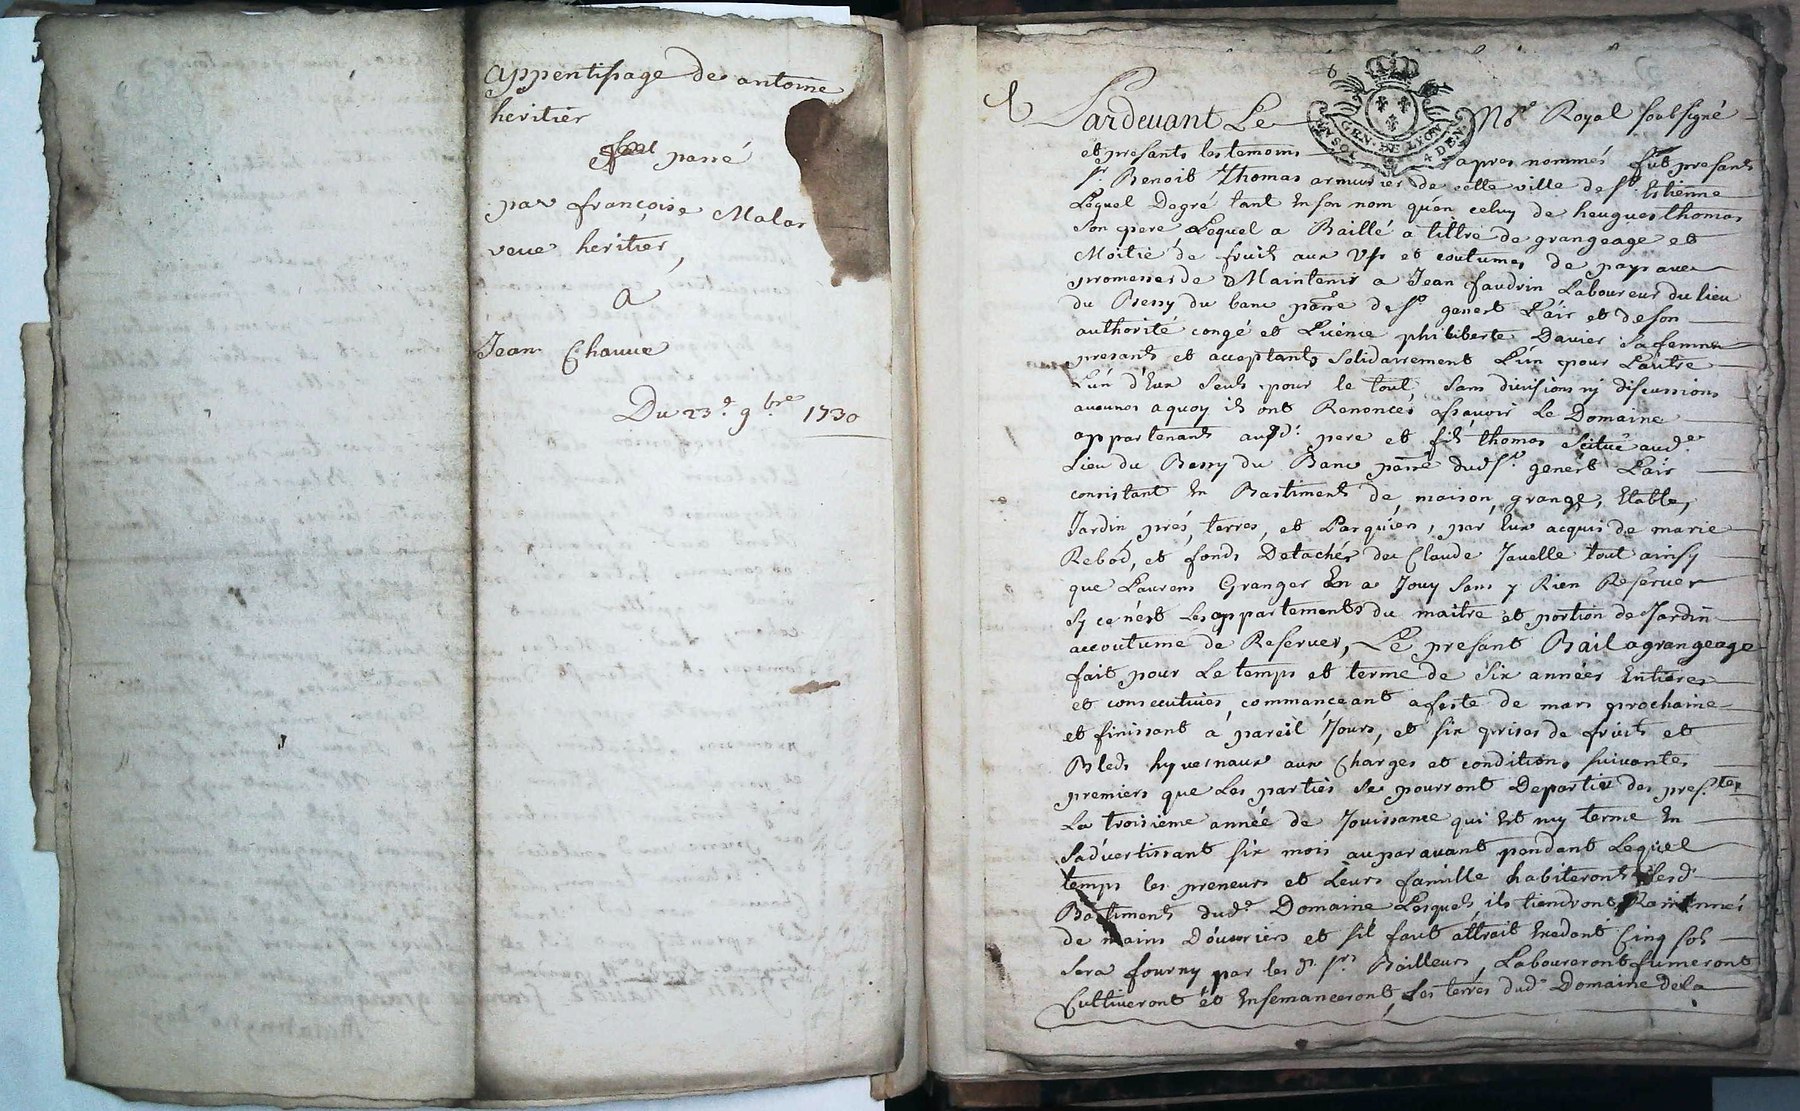 appentissage de antoine
heritier
passé
par françoise Malas
veue heritier,
a
Jean Chauve
Du 23e. 9bre 1730
Pardevant Le Nore Royal soubsigné
GEN. DE LYON
UN SOL 4 DEN
et présants les temoins apres nommés fut présant
sr. Benoit Thomas armurier de cette ville de st Estienne
Lequel Degré tant En son nom qu'en celuy de heugues thomas
son pere Lequel a Baillé a tiltre de grangeage et
Moitié de fruits aux Us et coutumes de pays avec
promesses de Maintenir a Jean faudrin Laboureur du lieu
du Bessy du banc parre de st genest L'air et de son
authorité congé et Licence philiberte Davier sa femme
presants et acceptants solidairement L'un pour L'autre
L'un d'Eux seuls pour le tout, sans divisions ny discussions
aucunes aquoy ils ont Renoncés, assavoir Le Domaine
appartenant ausd. pere et fils thomas scitué aud.
Lieu du Bessy du Banc parre dud st. genest L'air
consistant En Bastiments de maison, grange, Etable,
Jardin, prés, terres, et Parquiers, par Eux acquis de marie
Rebod, et fonds Detachés de Claude Javelle tout ainsy
que Laurens Granger En a Jouy sans y Rien Reserver
sy ce n'est Les appartements du maitre et portion de Jardin
accoutumé de Reserver, Le present Bail a grangeage
fait pour Le temps et terme de six années Entieres
et consecutives, commanceant a feste de mars prochaine
et finissant a pareil Jours, et six prises de fruits et
Bleds hyvernaux aux Charges et conditions suivantes
premiers que Les parties se pourront Departir des pres.tes
La troisieme année de Jouissance qui Est my terme En
s'advertissant six mois auparavant pendant Lequel
temps les preneurs et Leurs famille habiteront lesd.
Batiments dud. Domaine Lesquels ils tiendront
de mains D'ouvriers et s'il faut attrait Exedant Cinq sols
sera fourny par les d. srs. Bailleurs, Laboureront fumeront
Cultiveront et Ensemanceront, Les terres dud. Domaine de la